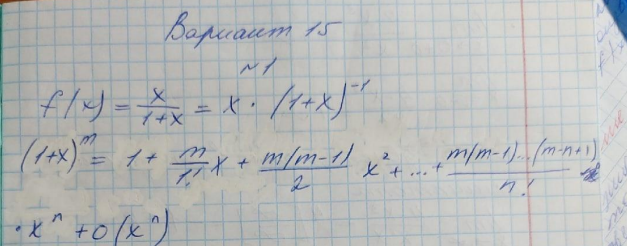 Вариант 15
~1
f(x) = x/(1+x) = x · (1+x)^-1
(1+x)^m = 1 + m/1! x + m(m-1)/2 x^2 + ... + m(m-1)...(m-n+1)/n!
· x^n + o(x^n)